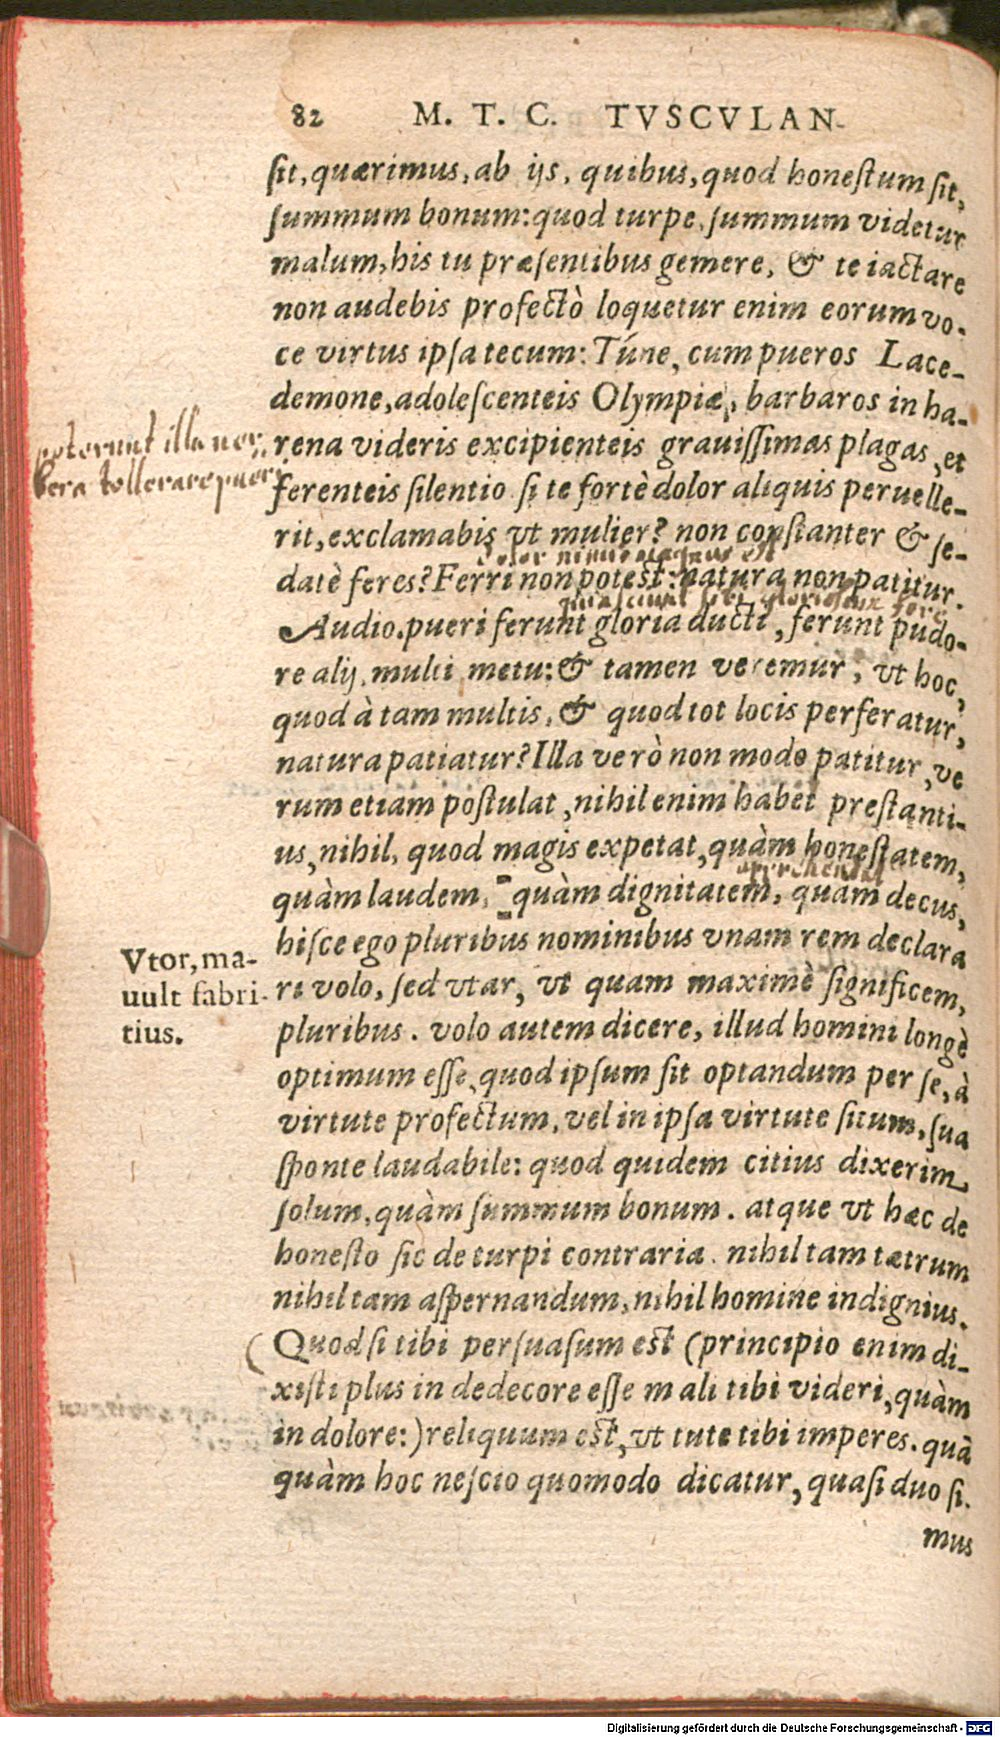 82 M. T. C. TVSCVLAN.
sit, quærimus, ab ijs, quibus, quod honestum sit,
summum bonum: quod turpe, summum videtur
malum, his tu præsentibus gemere, & te iactare
non audebis profectò loquetur enim eorum vo-
ce virtus ipsa tecum: Túne, cum pueros Lace-
demone, adolescenteis Olympiæ, barbaros in ha-
poterunt illa ver
rena videris excipienteis grauissimas plagas, et
bera tollerare pueri
ferenteis silentio si te fortè dolor aliquis peruelle-
rit, exclamabis vt mulier? non constanter & se-
dolor nimis magnus est
datè feres? Ferri non potest: natura non patitur.
gloriosum fore
Audio. pueri ferunt gloria ducti, ferunt pudo-
re alij, multi metu: & tamen veremur, vt hoc,
quod à tam multis, & quod tot locis perferatur,
natura patiatur? Illa verò non modo patitur, ve
rum etiam postulat, nihil enim habet prestanti-
us, nihil, quod magis expetat, quàm honestatem,
quàm laudem, quàm dignitatem, quàm decus,
hisce ego pluribus nominibus vnam rem declara
Vtor, ma-
uult fabri-
tius.
ri volo, sed vtar, vt quam maximè significem,
pluribus. volo autem dicere, illud homini longè
optimum esse, quod ipsum sit optandum per se, à
virtute profectum, vel in ipsa virtute situm, sua
sponte laudabile: quod quidem citius dixerim
solum, quàm summum bonum. atque vt hæc de
honesto sic de turpi contraria. nihil tam tætrum
nihil tam aspernandum, nihil homine indignius.
(Quod si tibi persuasum est (principio enim di-
xisti plus in dedecore esse mali tibi videri, quàm
in dolore:) reliquum est, vt tute tibi imperes. quã
quàm hoc nescio quomodo dicatur, quasi duo si-
mus
Digitalisierung gefördert durch die Deutsche Forschungsgemeinschaft - DFG